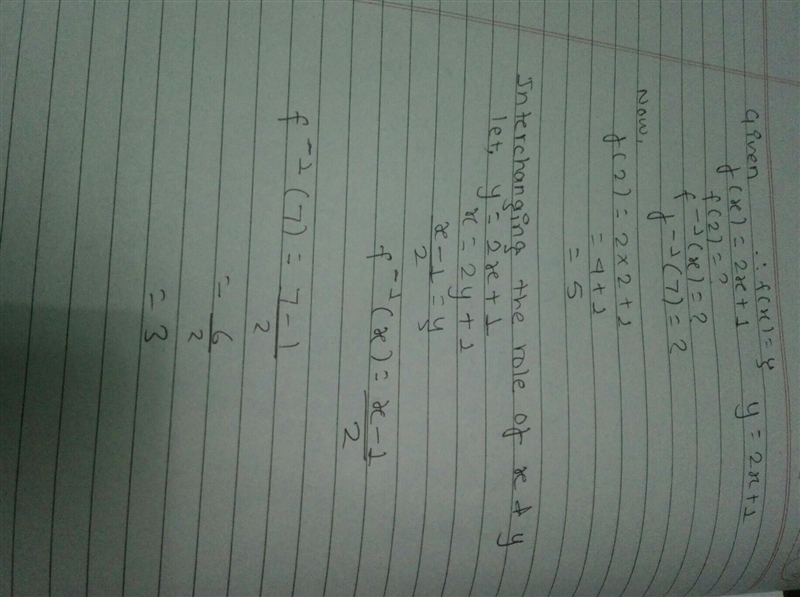 ∴ f(x) = y
Given f(x) = 2x+1 y = 2x+1
f(2) = ?
f⁻¹(x) = ?
f⁻¹(7) = ?
Now,
f(2) = 2×2+1
= 4+1
= 5
Interchanging the role of x & y
let, y = 2x+1
x = 2y+1
x-1/2 = y
f⁻¹(x) = x-1/2
f⁻¹(7) = 7-1/2
= 6/2
= 3